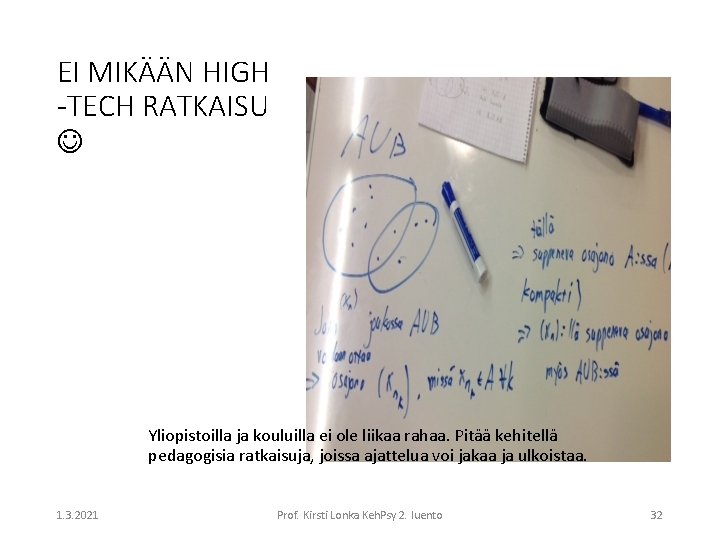 EI MIKÄÄN HIGH
-TECH RATKAISU
☺
AUB
tällä
⇒ suppeneva osajono A:ssa (
kompakti)
(xₙ)
jonossa AUB
⇒ (xₙ):llä suppeneva osajono
myös AUB:ssä
⇒ osajono (xₙₖ), missä xₙₖ ∈ A ∀k
Yliopistoilla ja kouluilla ei ole liikaa rahaa. Pitää kehitellä
pedagogisia ratkaisuja, joissa ajattelua voi jakaa ja ulkoistaa.
1.3.2021
Prof. Kirsti Lonka Keh.Psy 2. luento
32